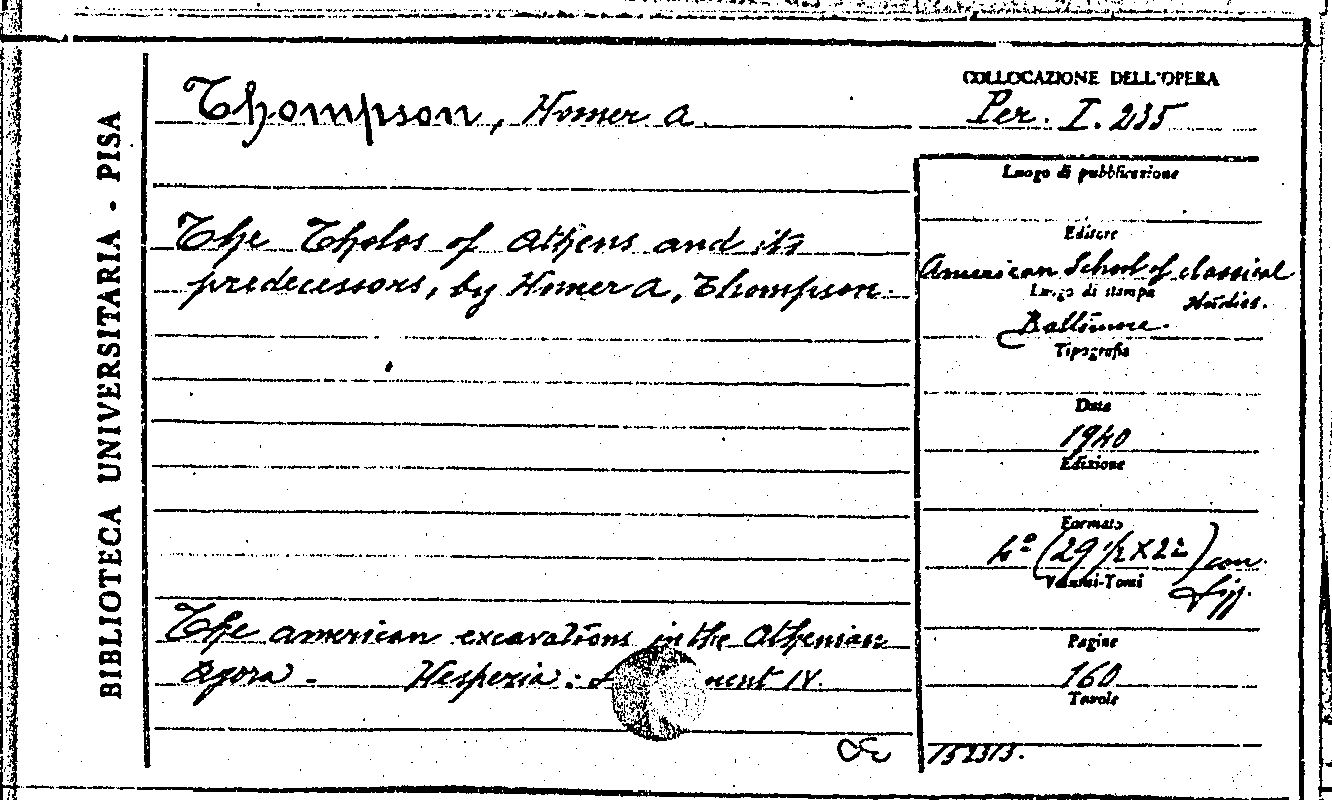 BIBLIOTECA UNIVERSITARIA - PISA
Thompson, Homer A.
The Tholos of Athens and its
predecessors, by Homer A, Thompson.
The american excavations in the Athenian
Agora - Hesperia: S ment IV.
COLLOCAZIONE DELL'OPERA
Per. I. 235
Luogo di pubblicazione
Editore
American School of classical
studies.
Luogo di stampa
Baltimore.
Tipografia
Data
1940
Edizione
Formato
4º (29 1/2 X 22) con
figg.
Volumi-Tomi
Pagine
160
Tavole
152313.